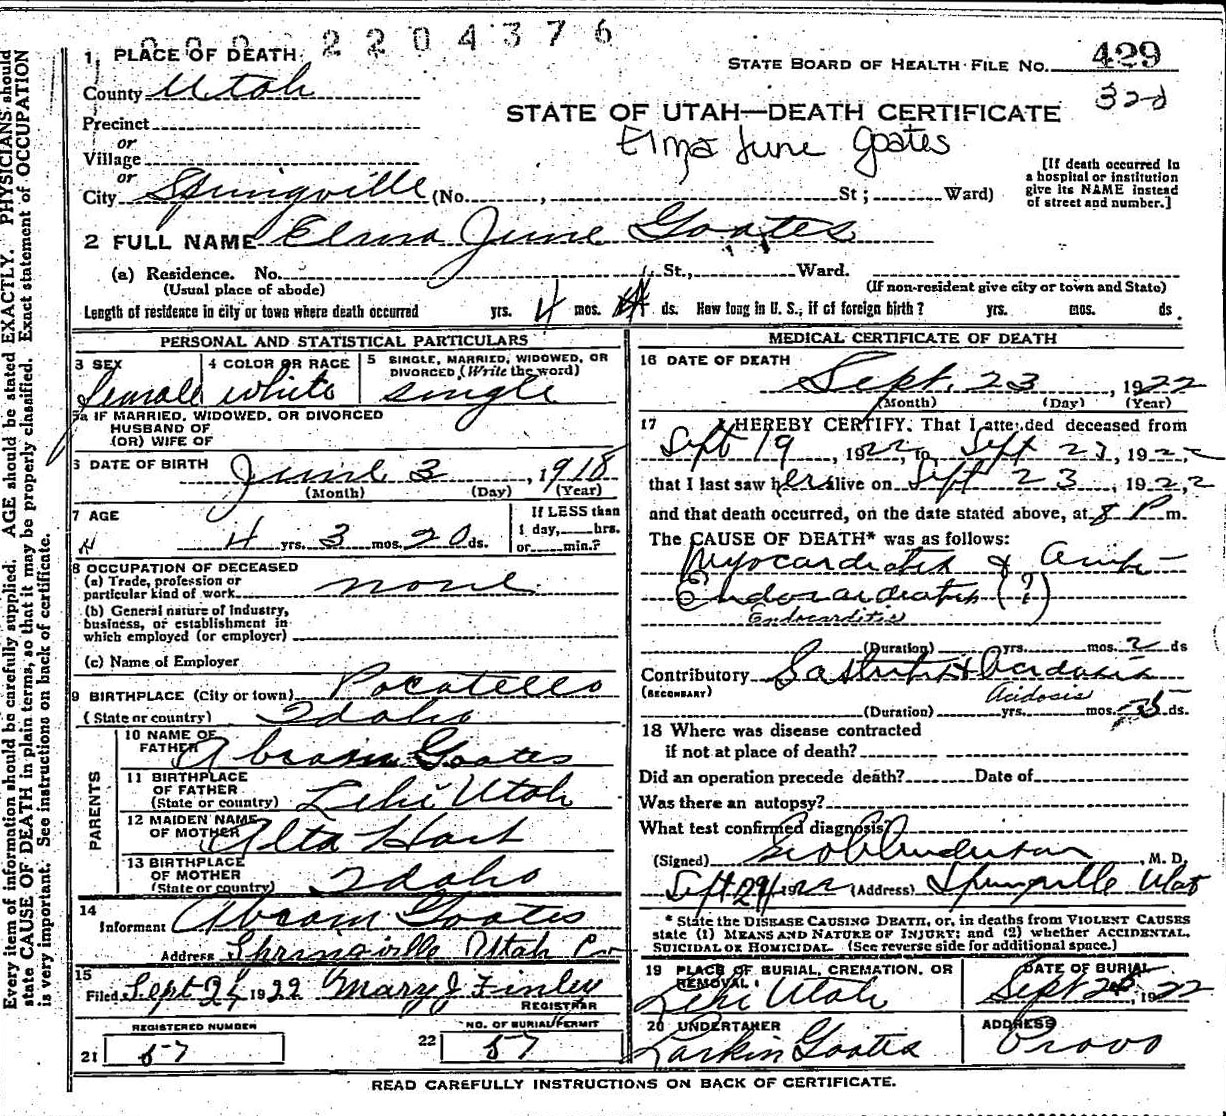 0002204376
1 PLACE OF DEATH
STATE BOARD OF HEALTH FILE No. 429
County Utah
32d
STATE OF UTAH—DEATH CERTIFICATE
Precinct
Elma June Goates
or
Village
or
[If death occurred in a hospital or institution give its NAME instead of street and number.]
City Springville (No. , St ; Ward)
2 FULL NAME Elma June Goates
(a) Residence. No. St., Ward.
(Usual place of abode) (If non-resident give city or town and State)
Length of residence in city or town where death occurred yrs. 4 mos. ds. How long in U. S., if of foreign birth ? yrs. mos. ds.
PERSONAL AND STATISTICAL PARTICULARS
3 SEX 4 COLOR OR RACE 5 SINGLE, MARRIED, WIDOWED, OR
DIVORCED (Write the word)
female white single
5a IF MARRIED, WIDOWED, OR DIVORCED
HUSBAND OF
(OR) WIFE OF
6 DATE OF BIRTH June 3, 1918
(Month) (Day) (Year)
7 AGE
4 4 yrs. 3 mos. 20 ds.
If LESS than
1 day, hrs.
or min.?
8 OCCUPATION OF DECEASED
(a) Trade, profession or
particular kind of work none
(b) General nature of industry,
business, or establishment in
which employed (or employer)
(c) Name of Employer
9 BIRTHPLACE (City or town) Pocatello
(State or country) Idaho
PARENTS
10 NAME OF
FATHER Abram Goates
11 BIRTHPLACE
OF FATHER
(State or country) Lehi Utah
12 MAIDEN NAME
OF MOTHER Alta Hart
13 BIRTHPLACE
OF MOTHER
(State or country) Idaho
14
Informant Abram Goates
Address Springville Utah Co
15
Filed Sept 24 1922 Mary J Finley
REGISTRAR
REGISTERED NUMBER
21 57
NO. OF BURIAL PERMIT
22 57
MEDICAL CERTIFICATE OF DEATH
16 DATE OF DEATH
Sept. 23, 1922
(Month) (Day) (Year)
17 I HEREBY CERTIFY, That I attended deceased from
Sept 19, 1922, to Sept 23, 1922
that I last saw her alive on Sept 23, 1922
and that death occurred, on the date stated above, at 8 P m.
The CAUSE OF DEATH* was as follows:
Myocardiatis &
Endocardiatis (?)
Endocarditis
(Duration) yrs. mos. 2 ds
Contributory Acidosis
(SECONDARY) Acidosis
(Duration) yrs. mos. 5 ds.
18 Where was disease contracted
if not at place of death?
Did an operation precede death? Date of
Was there an autopsy?
What test confirmed diagnosis?
(Signed) Geo Anderson, M. D.
Sept 29, 1922 (Address) Springville Utah
* State the DISEASE CAUSING DEATH, or, in deaths from VIOLENT CAUSES
state (1) MEANS AND NATURE OF INJURY; and (2) whether ACCIDENTAL,
SUICIDAL OR HOMICIDAL. (See reverse side for additional space.)
19 PLACE OF BURIAL, CREMATION, OR
REMOVAL
Lehi Utah
DATE OF BURIAL
Sept 25, 1922
20 UNDERTAKER
Larkin Goates
ADDRESS
Provo
READ CAREFULLY INSTRUCTIONS ON BACK OF CERTIFICATE.
Every item of information should be carefully supplied. AGE should be stated EXACTLY. PHYSICIANS should
state CAUSE OF DEATH in plain terms, so that it may be properly classified. Exact statement of OCCUPATION
is very important. See instructions on back of certificate.